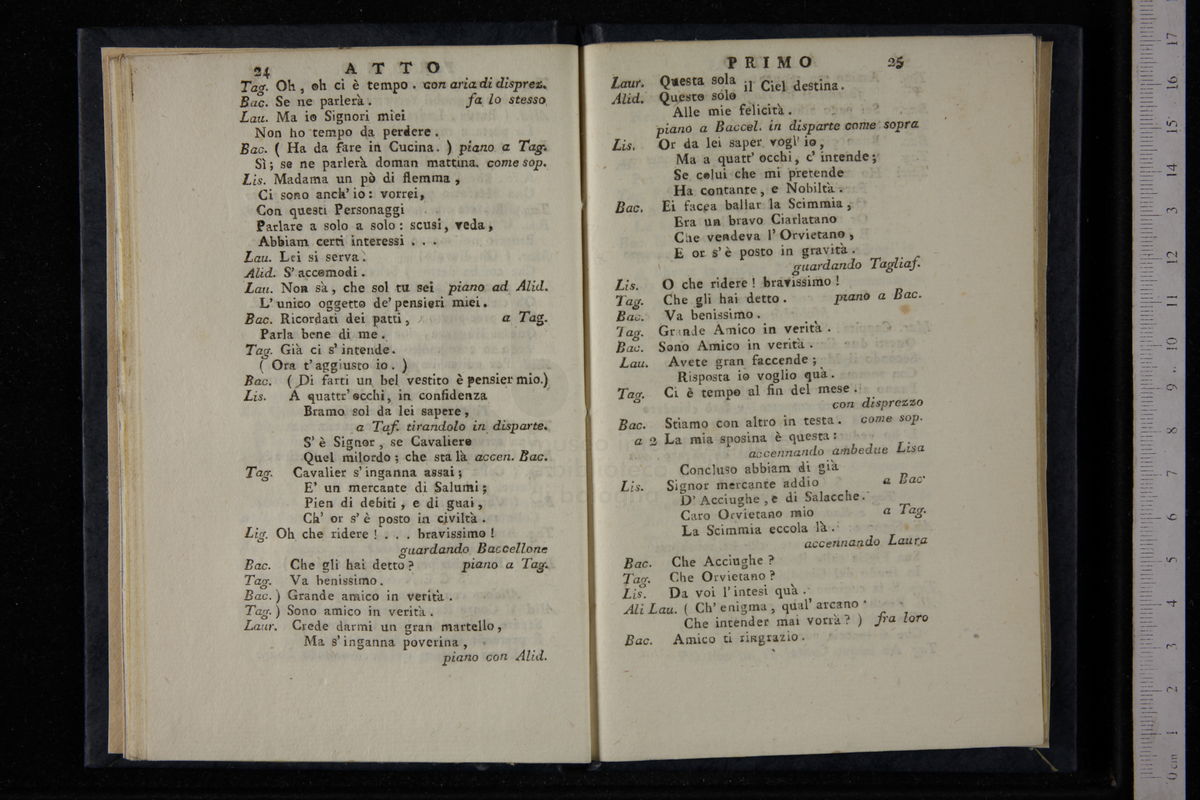 24 ATTO
Tag. Oh, oh ci è tempo. con aria di disprez.
Bac. Se ne parlerà. fa lo stesso
Lau. Ma io Signori miei
Non ho tempo da perdere.
Bac. ( Ha da fare in Cucina. ) piano a Tag.
Sì; se ne parlerà doman mattina. come sop.
Lis. Madama un pò di flemma,
Ci sono anch' io: vorrei,
Con questi Personaggi
Parlare a solo a solo: scusi, veda,
Abbiam certi interessi . . .
Lau. Lei si serva.
Alid. S' accomodi.
Lau. Non sà, che sol tu sei piano ad Alid.
L' unico oggetto de' pensieri miei.
Bac. Ricordati dei patti, a Tag.
Parla bene di me.
Tag. Già ci s' intende.
( Ora t' aggiusto io. )
Bac. (Di farti un bel vestito è pensier mio.)
Lis. A quattr' occhi, in confidenza
Bramo sol da lei sapere,
a Taf. tirandolo in disparte.
S' è Signor, se Cavaliere
Quel milordo; che sta là accen. Bac.
Tag. Cavalier s' inganna assai;
E' un mercante di Salumi;
Pien di debiti, e di guai,
Ch' or s' è posto in civiltà.
Lig. Oh che ridere! . . . bravissimo!
guardando Baccellone
Bac. Che gli hai detto? piano a Tag.
Tag. Va benissimo.
Bac. ) Grande amico in verità.
Tag. ) Sono amico in verità.
Laur. Crede darmi un gran martello,
Ma s' inganna poverina,
piano con Alid.
PRIMO 25
Laur. Questa sola
il Ciel destina.
Alid. Questo solo
Alle mie felicità.
piano a Baccel. in disparte come sopra
Lis. Or da lei saper vogl' io,
Ma a quatt' occhi, c' intende;
Se colui che mi pretende
Ha contante, e Nobiltà.
Bac. Ei facea ballar la Scimmia,
Era un bravo Ciarlatano
Che vendeva l' Orvietano,
E or s' è posto in gravità.
guardando Tagliaf.
Lis. O che ridere! bravissimo!
Tag. Che gli hai detto. piano a Bac.
Bac. Va benissimo.
Tag. Grande Amico in verità.
Bac. Sono Amico in verità.
Lau. Avete gran faccende;
Risposta io voglio quà.
Tag. Ci è tempo al fin del mese.
con disprezzo
Bac. Stiamo con altro in testa. come sop.
a 2 La mia sposina è questa:
accennando ambedue Lisa
Concluso abbiam di già
Lis. Signor mercante addio a Bac.
D' Acciughe, e di Salacche.
Caro Orvietano mio a Tag.
La Scimmia eccola là.
accennando Laura
Bac. Che Acciughe?
Tag. Che Orvietano?
Lis. Da voi l' intesi quà.
Ali Lau. ( Ch' enigma, qual' arcano
Che intender mai vorrà? ) fra loro
Bac. Amico ti ringrazio.
0 cm 1 2 3 4 5 6 7 8 9 10 11 12 13 14 15 16 17